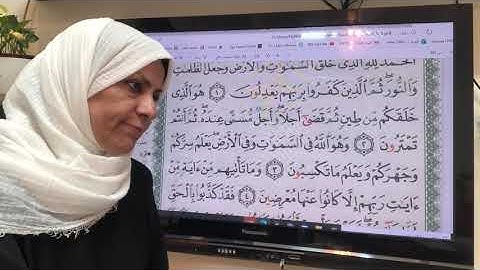 الْحَمْدُ لِلَّهِ الَّذِى خَلَقَ السَّمَـٰوَٰتِ وَالْأَرْضَ وَجَعَلَ الظُّلُمَـٰتِ
وَالنُّورَ ۖ ثُمَّ الَّذِينَ كَفَرُوا۟ بِرَبِّهِمْ يَعْدِلُونَ ١ هُوَ الَّذِى
خَلَقَكُم مِّن طِينٍ ثُمَّ قَضَىٰٓ أَجَلًا ۖ وَأَجَلٌ مُّسَمًّى عِندَهُۥ ۖ ثُمَّ أَنتُمْ
تَمْتَرُونَ ٢ وَهُوَ اللَّهُ فِى السَّمَـٰوَٰتِ وَفِى الْأَرْضِ ۖ يَعْلَمُ سِرَّكُمْ
وَجَهْرَكُمْ وَيَعْلَمُ مَا تَكْسِبُونَ ٣ وَمَا تَأْتِيهِم مِّنْ ءَايَةٍ مِّنْ
ءَايَـٰتِ رَبِّهِمْ إِلَّا كَانُوا۟ عَنْهَا مُعْرِضِينَ ٤ فَقَدْ كَذَّبُوا۟ بِالْحَقِّ
Panasonic